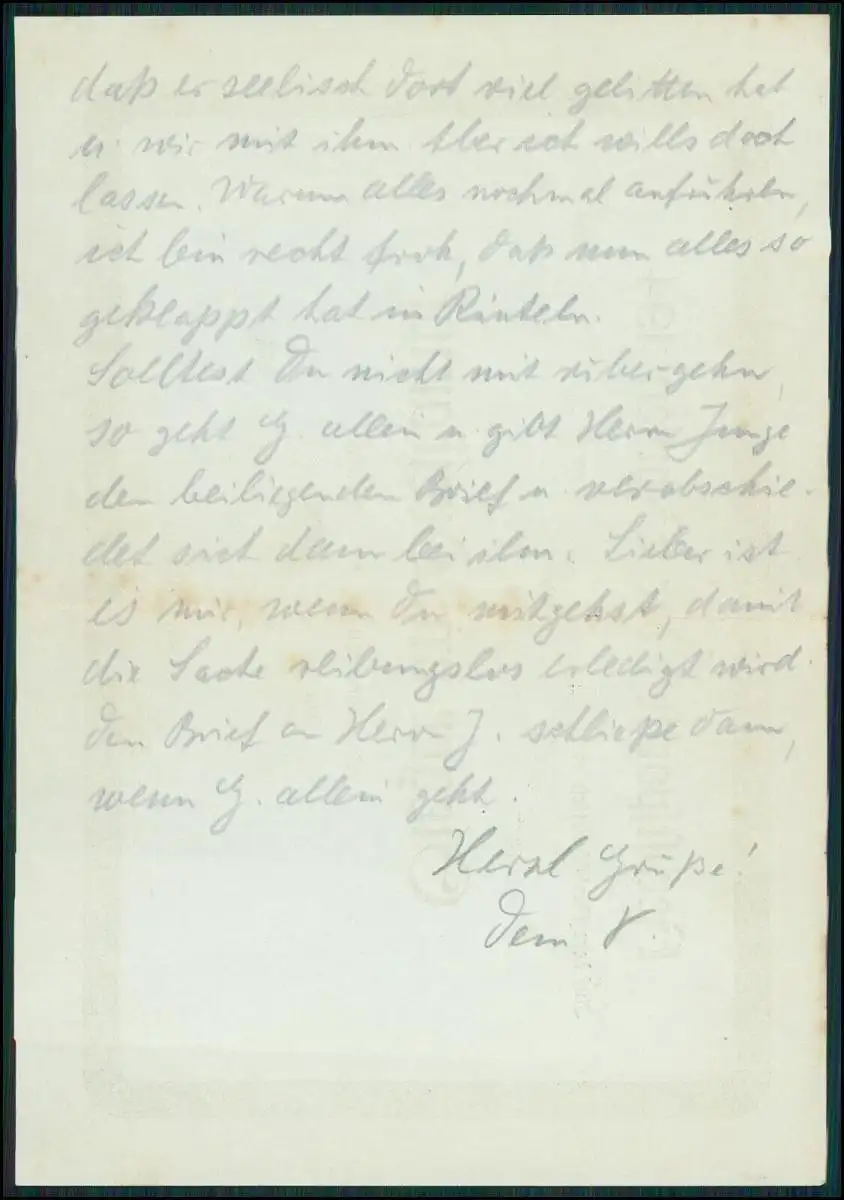 daß er seelisch dort viel gelitten hat
u. wir mit ihm. Aber ich wills doch
lassen. Warum alles nochmal anführen,
ich bin recht froh, daß nun alles so
geklappt hat in Rinteln.
Solltest Du nicht mit rübergehn,
so geht G. allein u. gibt Herrn Junge
den beiliegenden Brief u. verabschie-
det sich dann bei ihm. Lieber ist
es mir, wenn Du mitgehst, damit
die Sache reibungslos erledigt wird.
Den Brief an Herrn J. schließe dann,
wenn G. allein geht.
Herzl Grüße!
Dein V.